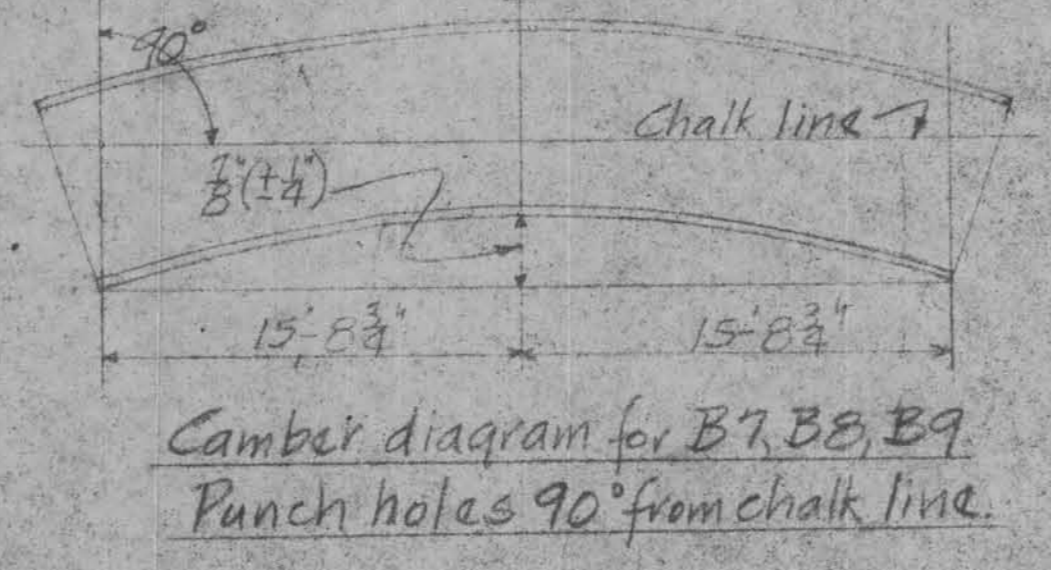 90°
Chalk line
7/8"(±1/4")
15'-8 3/4" 15'-8 3/4"
Camber diagram for B7, B8, B9
Punch holes 90° from chalk line.